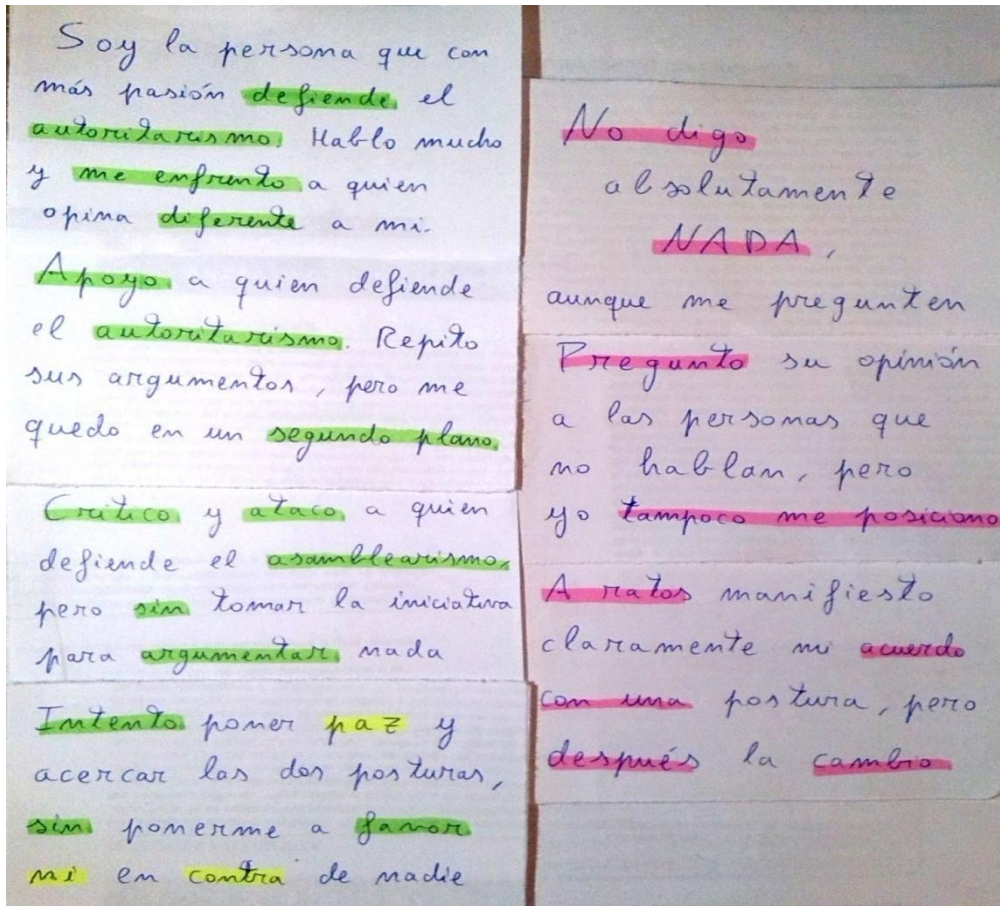 Soy la persona que con
más pasión defiende el
autoritarismo. Hablo mucho
y me enfrento a quien
opina diferente a mi.
Apoyo a quien defiende
el autoritarismo. Repito
sus argumentos, pero me
quedo en un segundo plano.
Critico y ataco a quien
defiende el asamblearismo,
pero sin tomar la iniciativa
para argumentar nada
Intento poner paz y
acercar las dos posturas,
sin ponerme a favor
ni en contra de nadie
No digo
absolutamente
NADA,
aunque me pregunten
Pregunto su opinión
a las personas que
no hablan, pero
yo tampoco me posiciono
A ratos manifiesto
claramente mi acuerdo
con una postura, pero
después la cambio